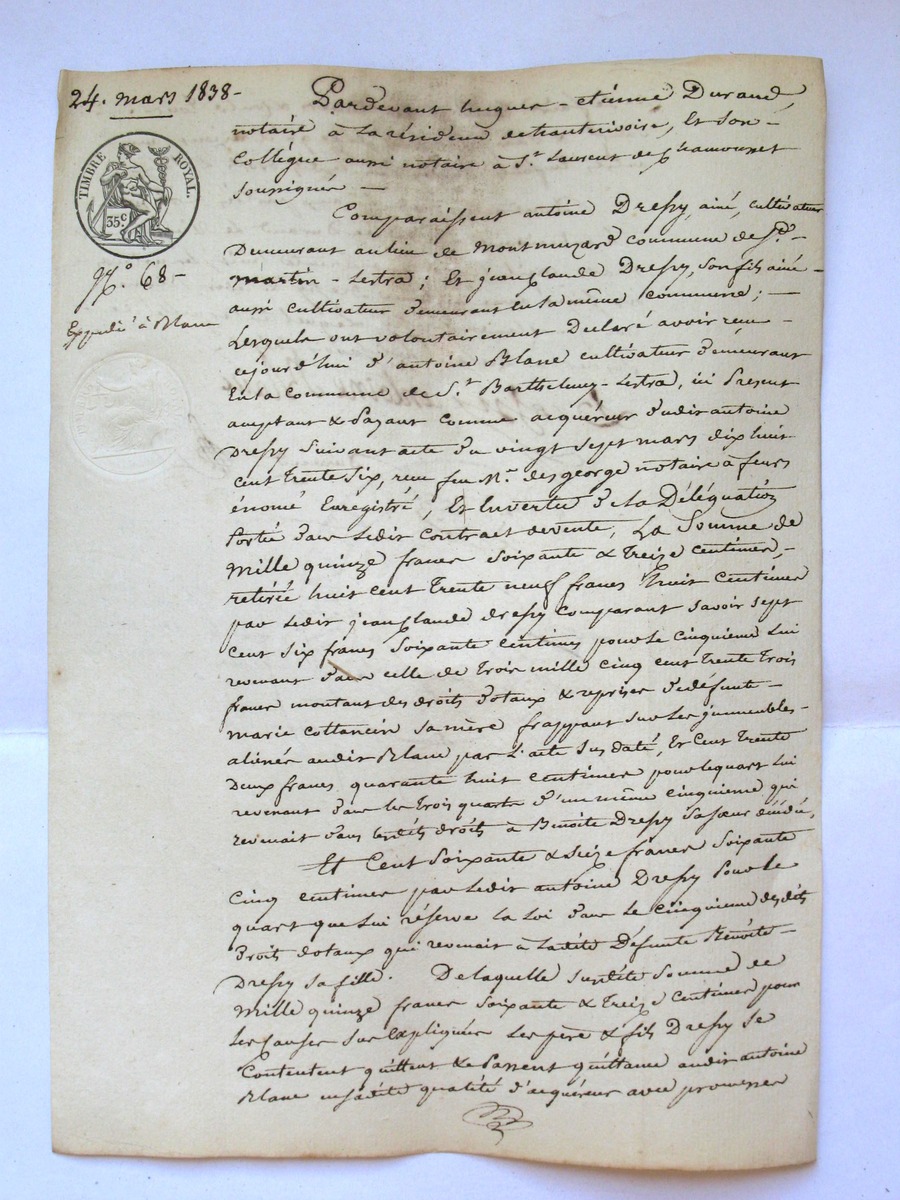 24. mars 1838 -
TIMBRE ROYAL.
35c
No. 68 -
Expédié à Blanc
Pardevant hugues - etienne Durand,
notaire à La résidence de hauterivoire, Et son -
Collègue aussi notaire à St. Laurent de Chamousset
soussignés -
Comparaissent antoine Dressy, ainé, cultivateur
Demeurant au lieu de Montmuzard commune de St. -
martin - Lestra ; Et jean claude Dressy, son fils ainé -
aussi cultivateur demeurant En la même commune ; -
Lesquels ont volontairement Déclaré avoir reçu -
cejourd'hui d'antoine Blanc cultivateur demeurant
En la Commune de St. Barthelemy - Lestra, ici Present
aceptant & Payant comme acquéreur dudit antoine
Dressy suivant acte du vingt sept mars dix huit
cent trente six, reçu feu Me. desgeorge notaire à feurs
énomé Enregistré, Et En vertu de la Délégation
Portée dans Ledit Contract de vente, La Somme de
Mille quinze francs soixante & Treize centimes, -
retirée huit cent Trente neuf francs huit Centimes
par Ledit jean claude dressy comparant savoir sept
Cent six francs Soixante centimes pour le cinquieme Lui
revenant dans celle de Trois mille cinq cent Trente Trois
francs montant des droits dotaux & reprises de défunte -
marie cottancin sa mère frappant sur les immeubles -
aliénés audit Blanc par L'acte sus daté, Et Cent Trente
Deux francs quarante huit centimes pour le quart Lui
revenant dans les Trois quarts d'un même cinquieme qui
revenait dans lesdits droits à Benoite Dressy sa sœur décédée,
Et Cent Soixante & seize francs soixante
cinq centimes par Ledit antoine Dressy Pour Le
quart que lui réserve la Loi dans le cinquieme desdits
Droits dotaux qui revenait à Ladite Défunte Benoite -
Dressy sa fille. De laquelle susdite somme de
Mille quinze francs soixante & Treize centimes pour
Les causes sus Expliquées Les père & fils Dressy se
Contentent quittent & Passent quittance audit antoine
Blanc en sadite qualité d'acquéreur avec promesses